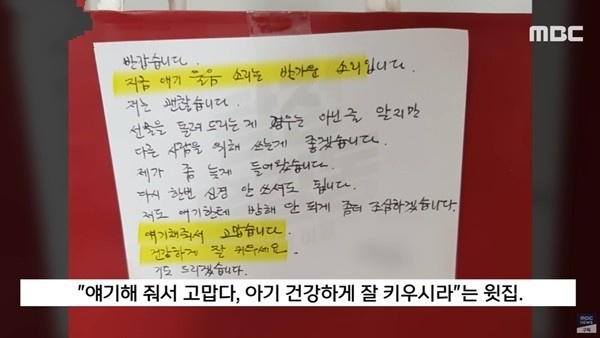 MBC
반갑습니다.
지금 애기 울음 소리는 반가운 소리입니다.
저는 괜찮습니다.
선물을 돌려 드리는게 경우는 아닌줄 알지만
다른 사람을 위해 쓰는게 좋겠습니다.
제가 좀 늦게 들어왔습니다.
다시 한번 신경 안 쓰셔도 됩니다.
저도 애기한테 방해 안 되게 좀더 조심하겠습니다.
얘기해줘서 고맙습니다.
건강하게 잘 키우세요.
기도 드리겠습니다.
"얘기해 줘서 고맙다, 아기 건강하게 잘 키우시라"는 윗집.
MBC
NEWS
구독